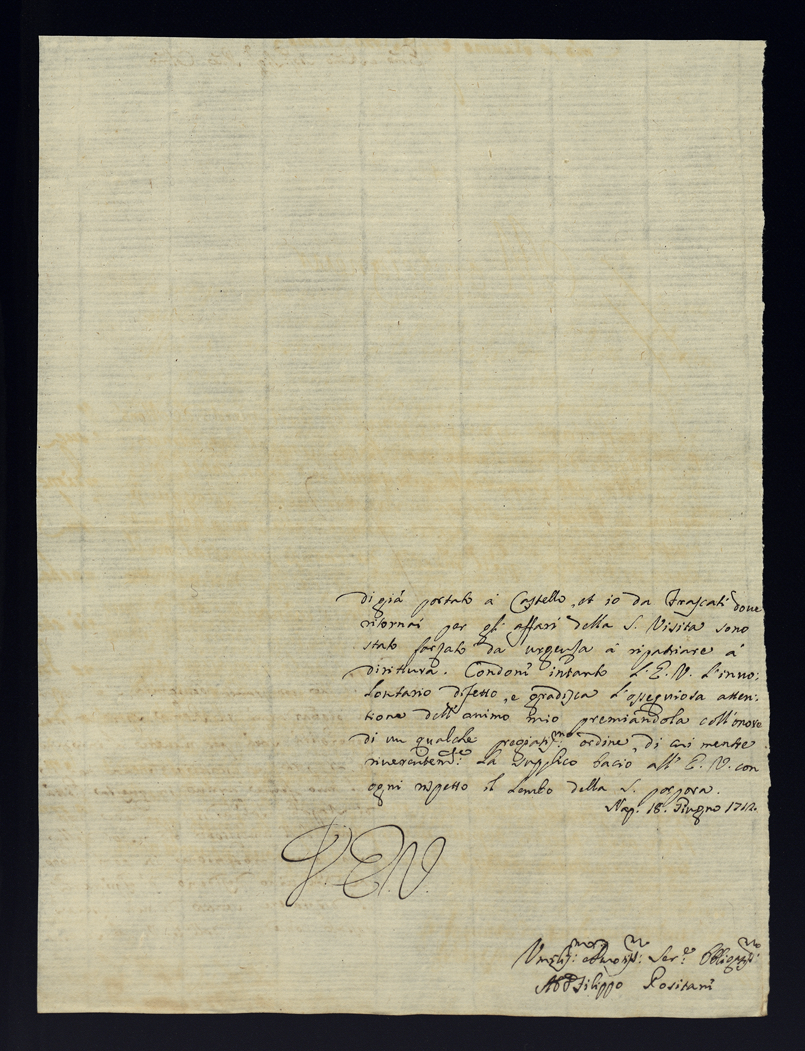 di già portato à Castello, et io da Frascati dove
ritornai per gl'affari della S. Visita sono
stato forzato da urgenza à ripatriare à
dirittura. Condoni intanto l'E. V. l'invo:
lontario difetto, e gradisca l'ossequiosa atten:
tione dell'animo mio premiandola coll'onore
di un qualche pregiatis.mo ordine, di cui mentre
riverentem.te La supplico bacio all'E. V. con
ogni rispetto il Lembo della S. porpora.
Nap. 18. Giugno 1712.
V. E. V.
Umilis.mo Ser.e Obligatis.mo
Filippo Positani